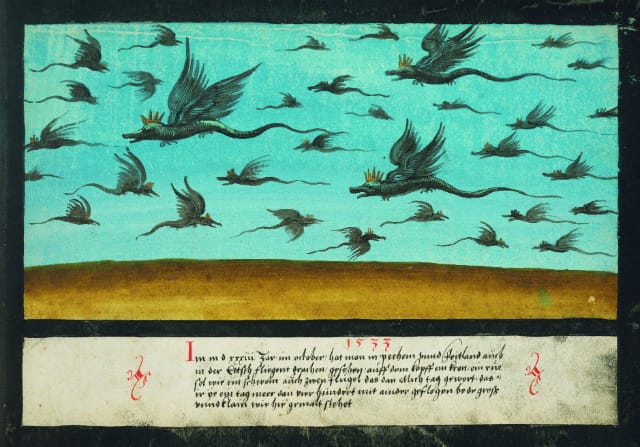 1533
Im m d xxxiii Jar im october / hat man in pechem vnnd Voitland auch
in der fliegent trachen gesehen / auff dem kopff ein kron, ein rüe
sel wie ein schwein auch zwen flügel das dan etlich tag gewert, das
ir ein tag meer dan vier hundert mit ainder geflogen beder gross
vnnd klain wie hie gemalt stehet